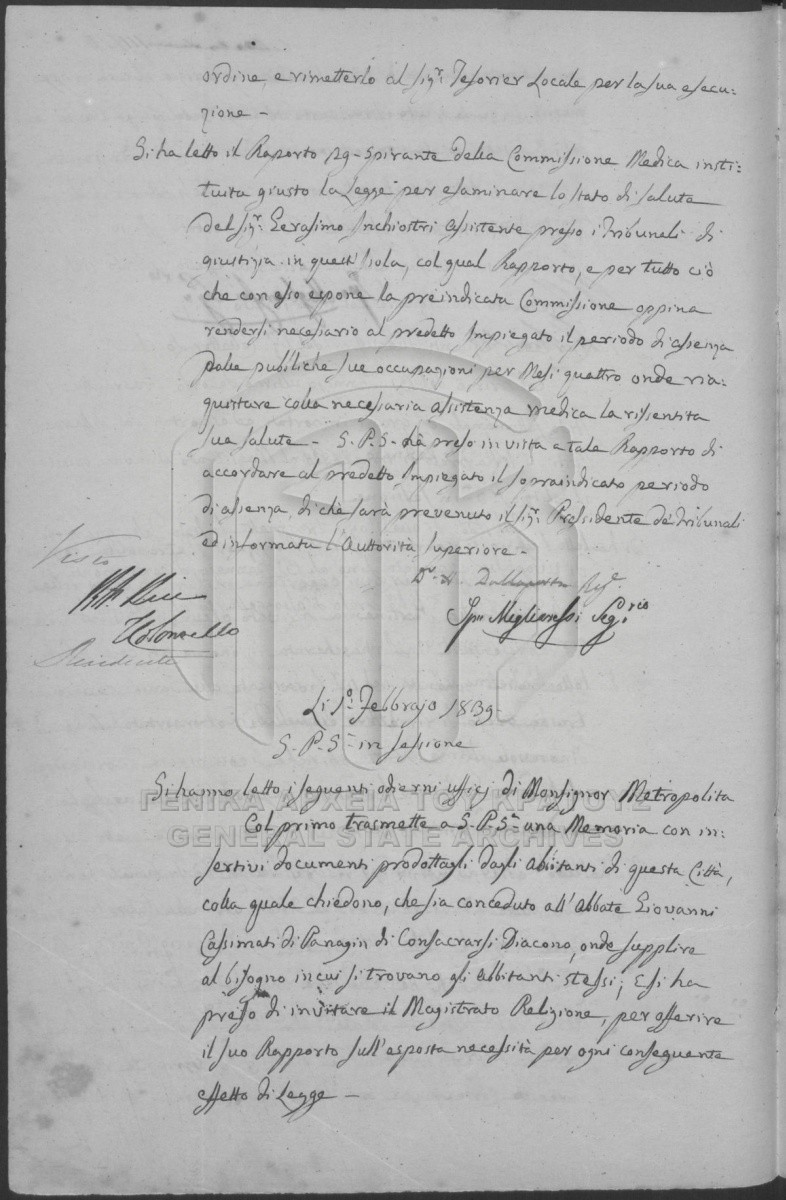 ordine, e rimetterlo al Sigr. Tesorier Locale per la sua esecu:
zione -
Si ha letto il Raporto 29 - spirante della Commissione Medica insti:
tuita giusto la Legge per esaminare lo stato di saluta
del Sigr. Gerasimo Inchiostri Assistente presso i Tribunali di
giustizia in quest'Isola, col qual Rapporto, e per tutto ciò
che con esso espone la preindicata Commissione oppina
rendersi necessario al predetto Impiegato il periodo di assenza
dalle pubbliche sue occupazioni per Mesi quattro onde ria:
quistare colla necessaria assistenza medica la rissentita
sua salute - S. P. S. hà preso in vista a tale Rapporto di
accordare al predetto Impiegato il sopraindicato periodo
di assenza, di chè sarà prevenuto il Sigr. Presidente de' Tribunali
ed informata l'Auttorità Superiore -
Dr. Dallaporta Regte.
Visto
Migliaressi Segrio
Colonnello
Residente
Li 1o. Febbrajo 1839 -
S. P. Sa in sessione
Si hanno letto i seguenti odierni ufficj di Monsignor Metropolita
Col primo trasmette a S. P. Sa. una Memoria con in:
sertivi documenti prodottagli dagli abbitanti di questa Città,
colla quale chiedono, che sia conceduto all'Abbate Giovanni
Cassimati di Panagin di Consacrarsi Diacono, onde supplire
al bisogno in cui si trovano gli abbitanti stessi; E si ha
presso di invitare il Magistrato Relizione, per offerire
il suo Rapporto sull'esposta necessità per ogni conseguente
effetto di Legge -
ΓΕΝΙΚΑ ΑΡΧΕΙΑ ΤΟΥ ΚΡΑΤΟΥΣ
GENERAL STATE ARCHIVES